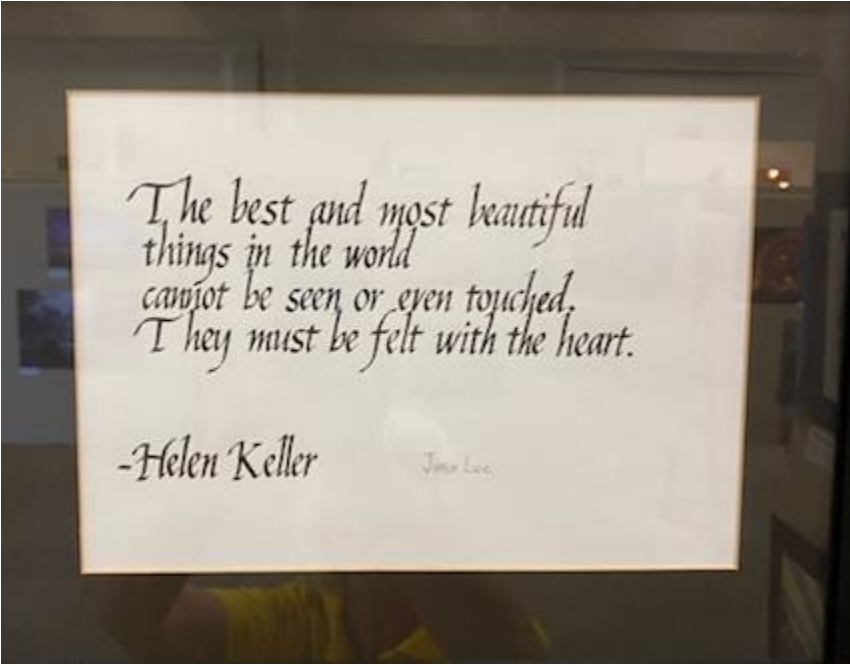 The best and most beautiful
things in the world
cannot be seen or even touched.
They must be felt with the heart.
-Helen Keller